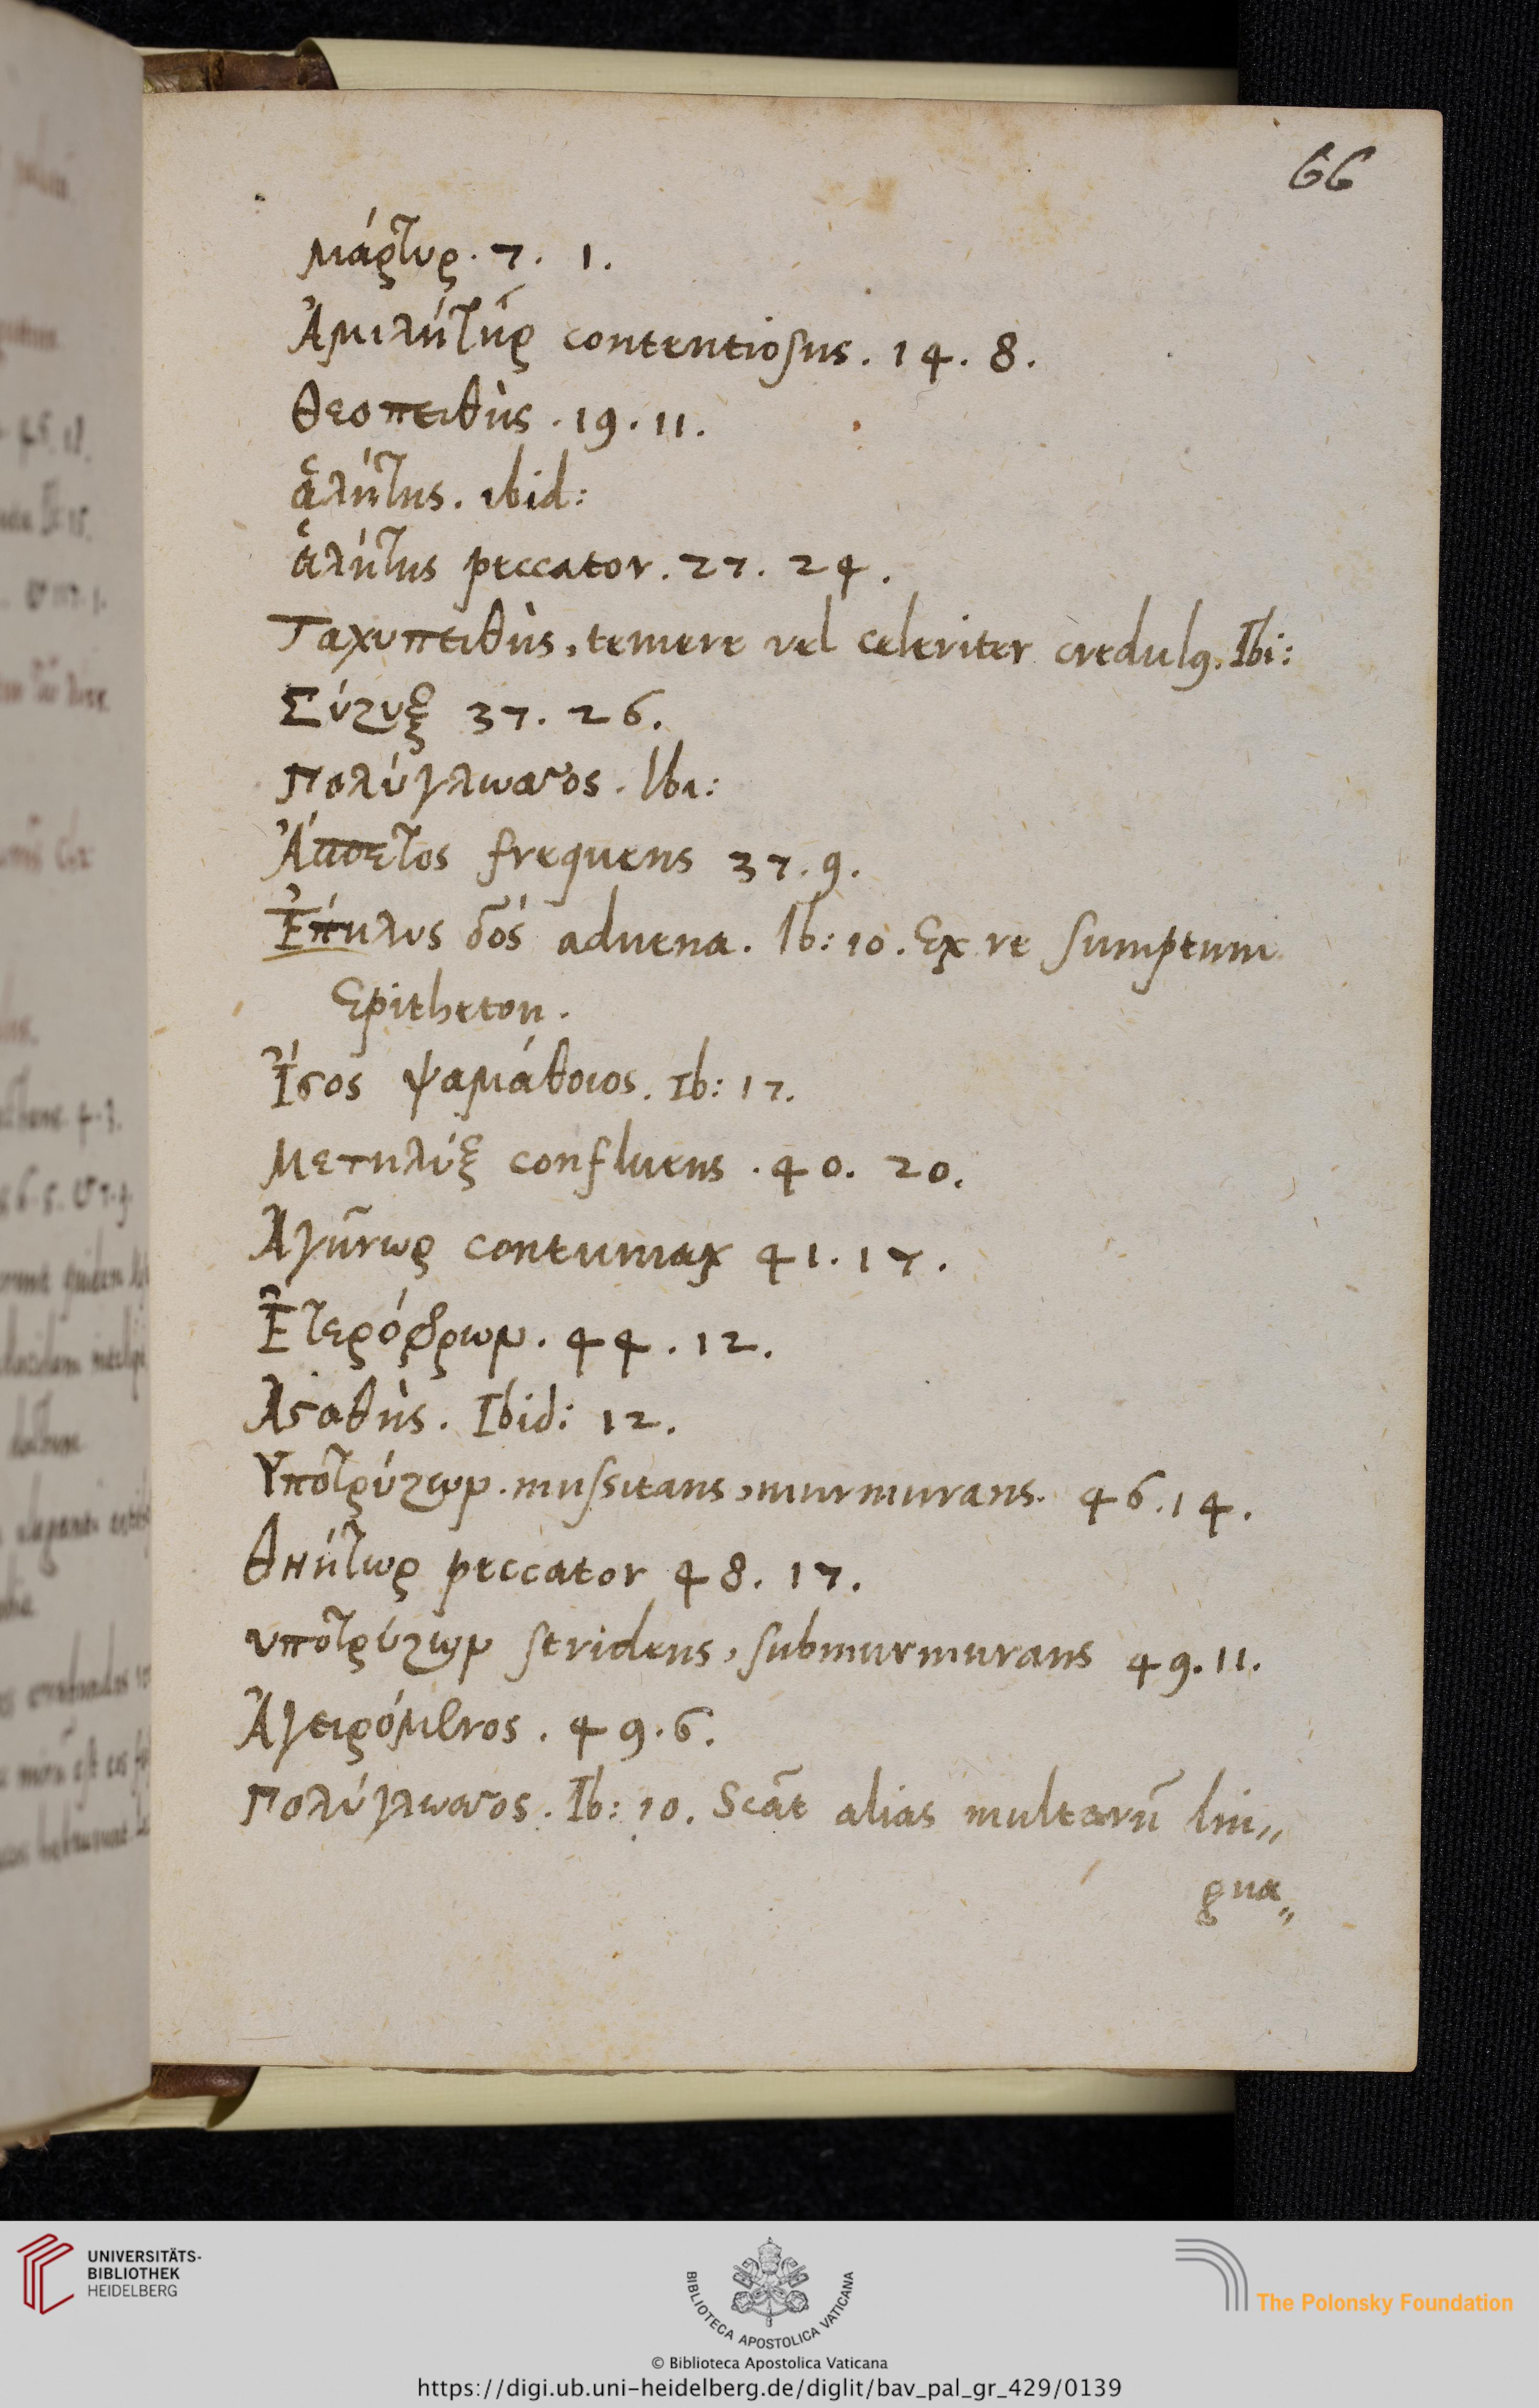 66
Μάρτυρ. 7. 1.
Ἀμιλητὴρ contentiosus. 14. 8.
Θεοπειθὴς. 19. 11.
ἀλήτης. ibid:
ἀλήτης peccator. 27. 24.
Ταχυπειθὴς, temere vel celeriter credulꝰ. Ibi:
Σύζυξ 37. 26.
Πολύγλωσσος. Ibi:
Ἄσπετος frequens 37. 9.
Ἐπήλυς δος advena. Ib: 10. Ex re sumptum
Epitheton.
Ἴσος ψαμάθοιος. Ib: 17.
Μετηλὺξ confluens. 40. 20.
Ἀγήνωρ contumax 41. 17.
Ἑτερόφρων. 44. 12.
Ἀσαθὴς. Ibid: 12.
Ὑποτρύζων. mussitans, murmurans. 46. 14.
θηήτωρ peccator 48. 17.
υποτρύζων stridens, submurmurans 49. 11.
Ἀγειρόμενος. 49. 6.
Πολύγλωσσος. Ib: 10. Scāt alias multarū lin„
gua„
UNIVERSITÄTS-
BIBLIOTHEK
HEIDELBERG
BIBLIOTECA APOSTOLICA VATICANA
The Polonsky Foundation
© Biblioteca Apostolica Vaticana
https://digi.ub.uni-heidelberg.de/diglit/bav_pal_gr_429/0139